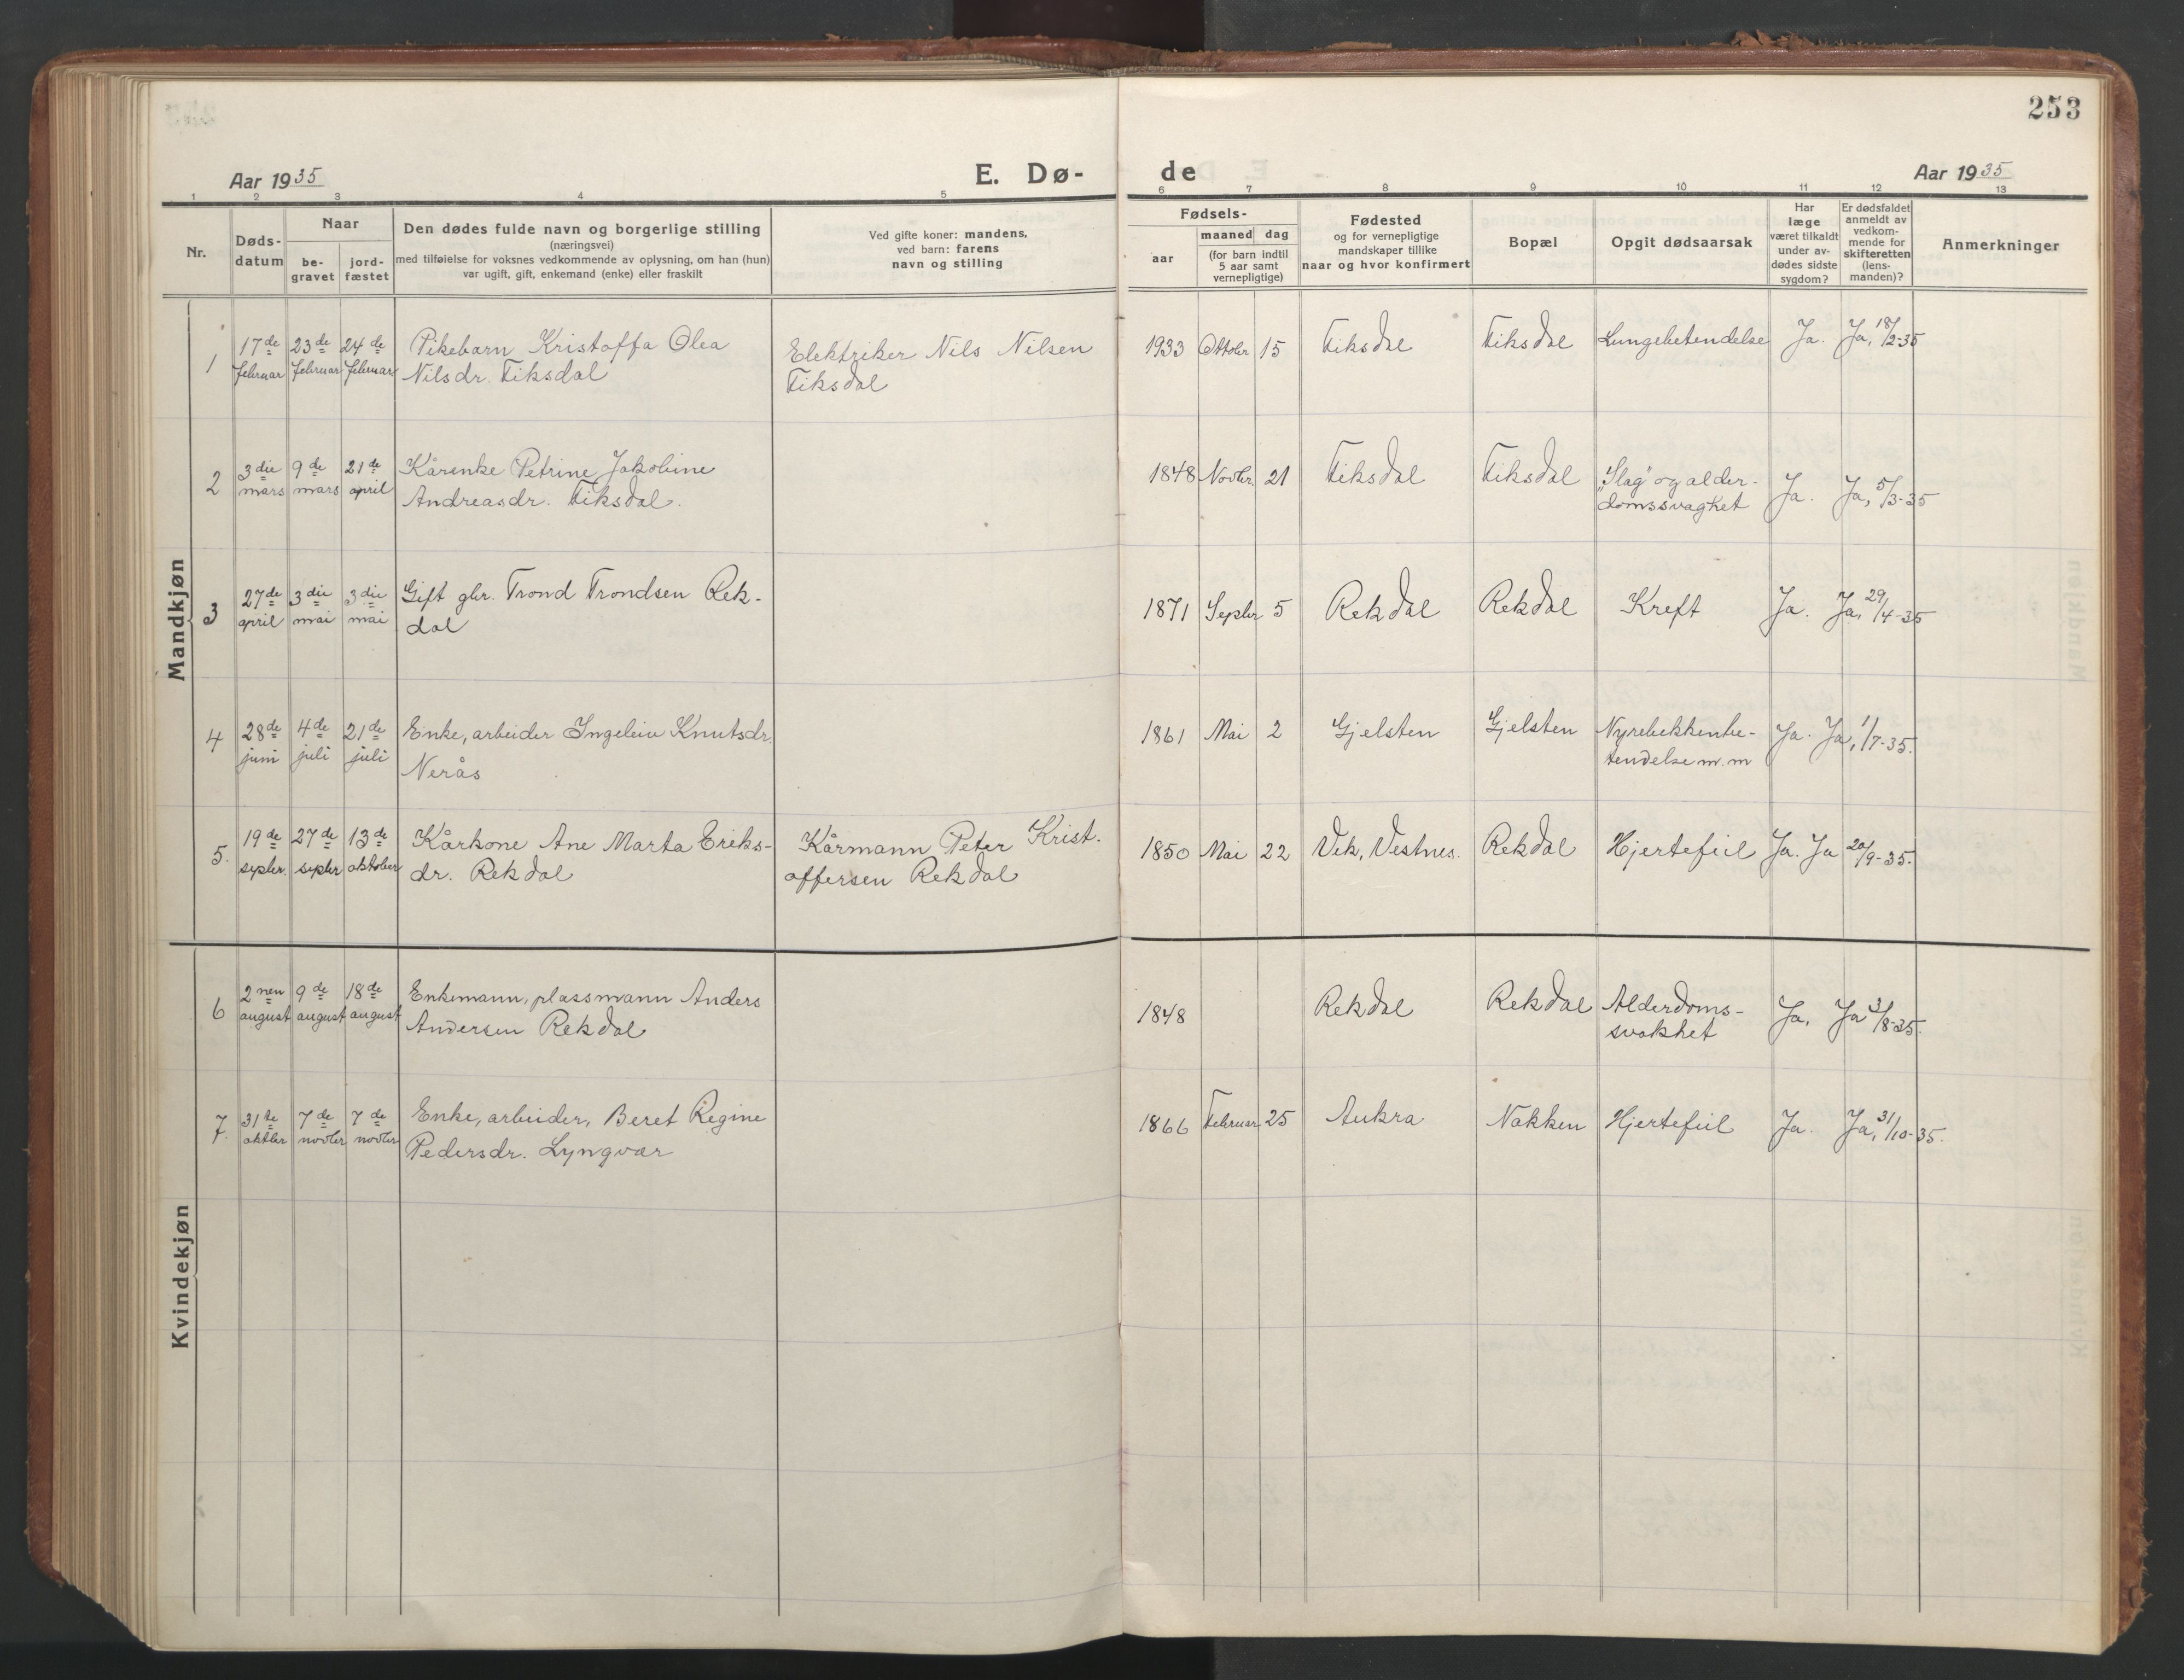 253
Aar 1935
E. Dø-
de
Aar 1935
1 2 3 4 5 6 7 8 9 10 11 12 13
Nr.
Døds-
datum
Naar
be-
gravet
jord-
fæstet
Den dødes fulde navn og borgerlige stilling
(næringsvei)
med tilføielse for voksnes vedkommende av oplysning, om han (hun)
var ugift, gift, enkemand (enke) eller fraskilt
Ved gifte koner: mandens,
ved barn: farens
navn og stilling
Fødsels-
aar
maaned dag
(for barn indtil
5 aar samt
vernepligtige)
Fødested
og for vernepligtige
mandskaper tillike
naar og hvor konfirmert
Bopæl
Opgit dødsaarsak
Har
læge
været tilkaldt
under av-
dødes sidste
sygdom?
Er dødsfaldet
anmeldt av
vedkom-
mende for
skifteretten
(lens-
manden)?
Anmerkninger
Mandkjøn
1 17de februar 23de februar 24de februar
Pikebarn Kristoffa Olea
Nilsdr. Tiksdal
Elektriker Nils Nilsen
Tiksdal
1933 Oktobr 15 Tiksdal Tiksdal Lungebetendelse Ja. Ja, 18/2-35
2 3die mars 9de mars 21de april
Kårenke Petrine Jakobine
Andreasdr. Tiksdal.
1848 Novbr. 21 Tiksdal Tiksdal "Slag" og alder-
domssvaghet Ja. Ja, 5/3-35
3 27de april 3die mai 3die mai
Gift gbr. Trond Trondsen Rek-
dal
1871 Septbr 5 Rekdal Rekdal Kreft Ja. Ja, 29/4-35
4 28de juni 4de juli 21de juli
Enke, arbeider Ingeleiv Knutsdr.
Nerås
1861 Mai 2 Gjelsten Gjelsten Nyrebekkenbe-
tendelse m.m Ja. Ja, 1/7-35.
5. 19de septbr. 27de septbr 13de oktober
Kårkone Ane Marta Eriks-
dr. Rekdal
Kårmann Peter Krist.
offersen Rekdal
1850 Mai 22 Vik, Vestnes. Rekdal Hjertefeil Ja. Ja 20/9-35.
Kvindekjøn
6 2nen august 9de august 18de august
Enkemann, plassmann Anders
Andersen Rekdal
1848 Rekdal Rekdal Alderdoms-
svakhet Ja, Ja 3/8-35.
7. 31te oktbr 7de novbr 7de novbr
Enke, arbeider, Beret Regine
Pedersdr. Lyngvær
1866 Februar 25 Aukra Nakken Hjertefeil Ja. Ja, 31/10-35.